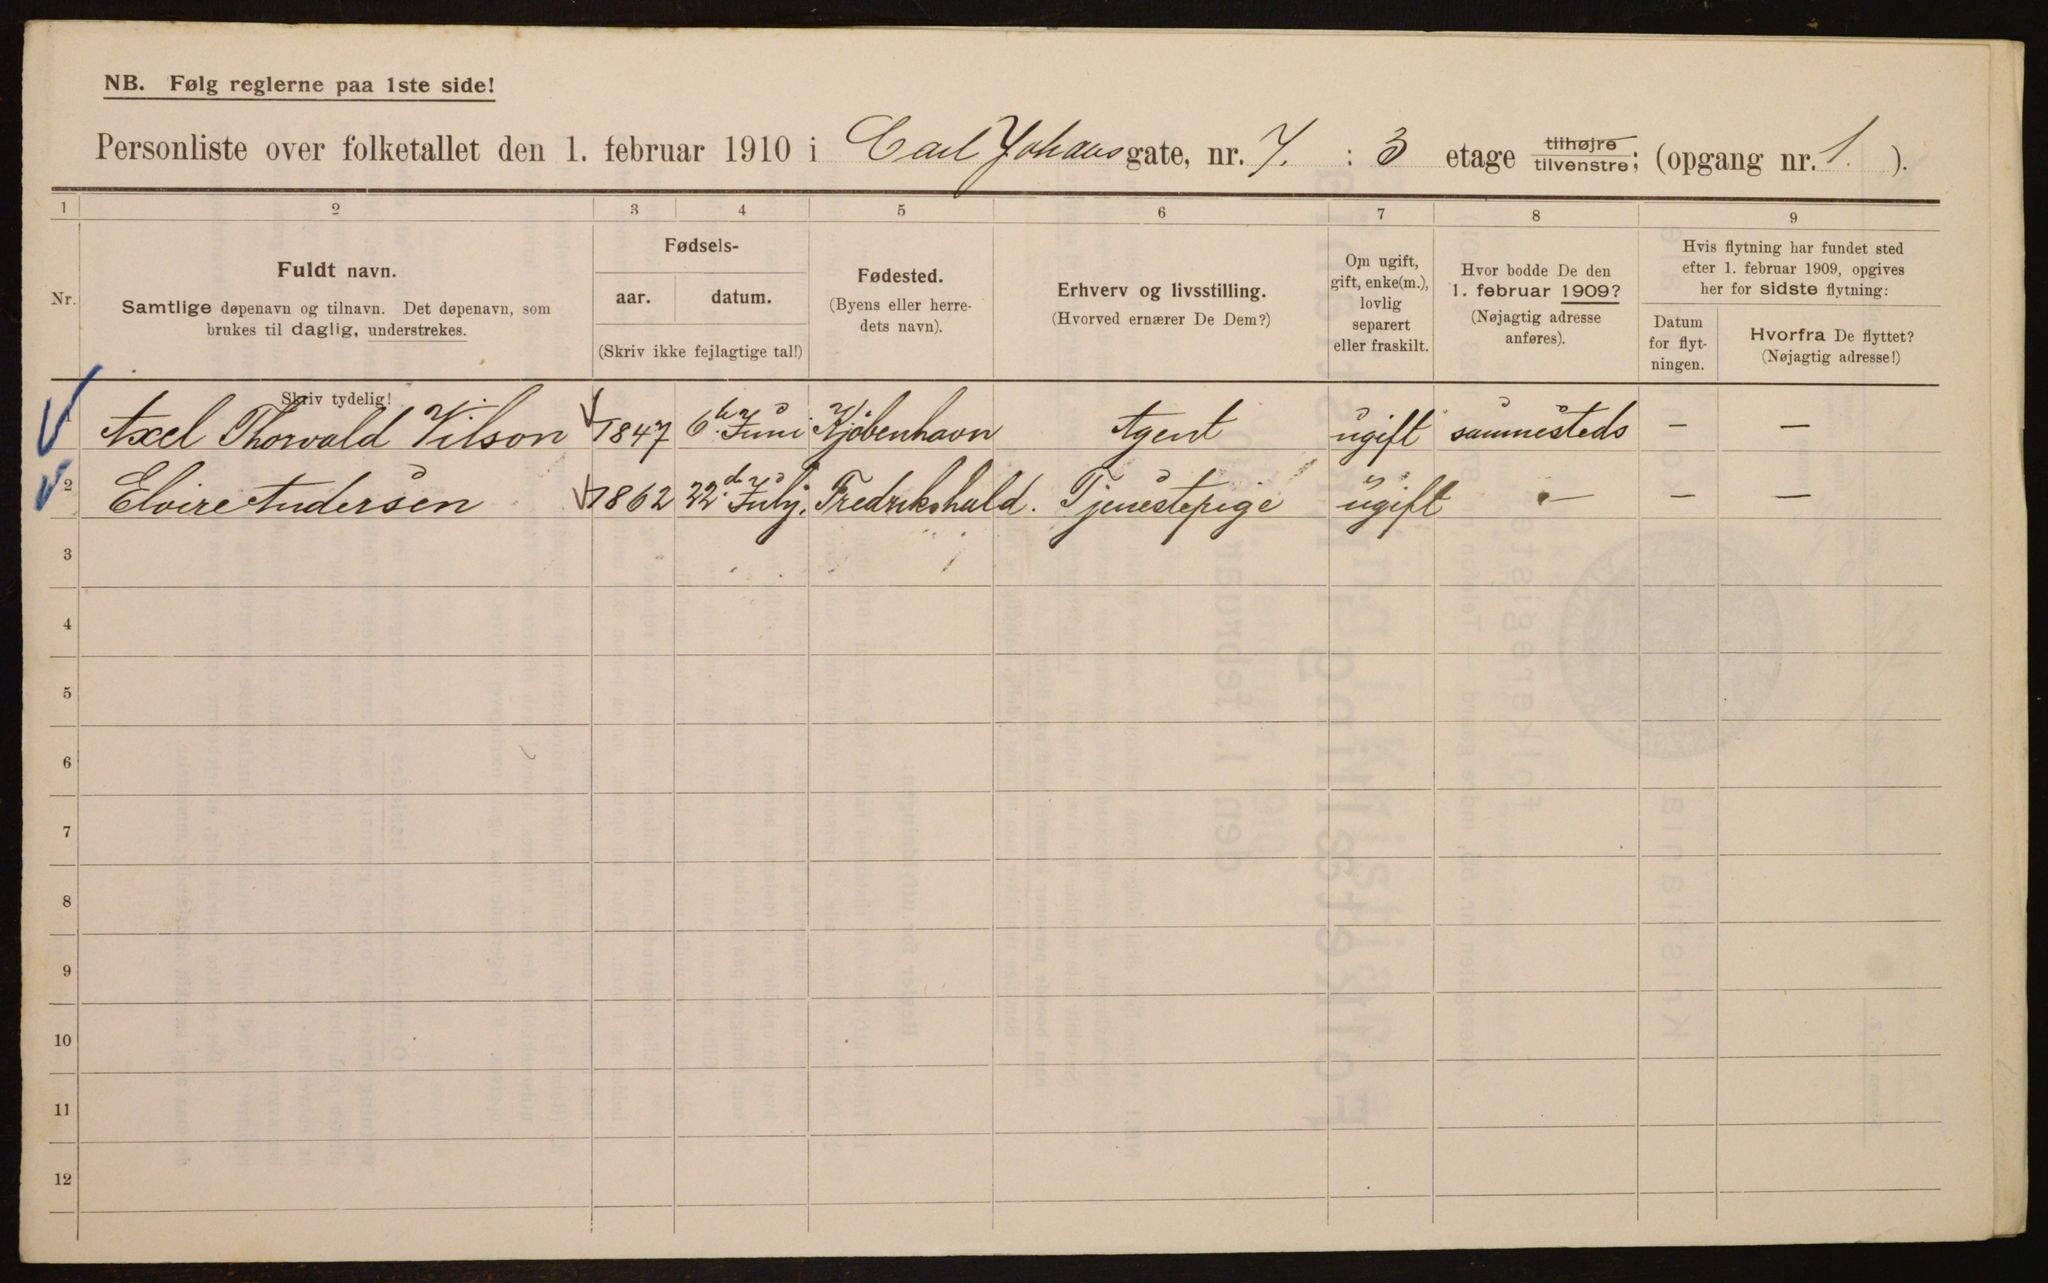 NB. Følg reglerne paa 1ste side!
Personliste over folketallet den 1. februar 1910 i Carl Johans gate, nr. 7. : 3 etage tilhøjre tilvenstre; (opgang nr. 1. ).
1 2 3 4 5 6 7 8 9
Nr.
Fuldt navn.
Samtlige døpenavn og tilnavn. Det døpenavn, som
brukes til daglig, understrekes.
Skriv tydelig!
Fødsels-
aar. datum.
(Skriv ikke fejlagtige tal!)
Fødested.
(Byens eller herre-
dets navn).
Erhverv og livsstilling.
(Hvorved ernærer De Dem?)
Om ugift,
gift, enke(m.),
lovlig
separert
eller fraskilt.
Hvor bodde De den
1. februar 1909?
(Nøjagtig adresse
anføres).
Hvis flytning har fundet sted
efter 1. februar 1909, opgives
her for sidste flytning:
Datum
for flyt-
ningen.
Hvorfra De flyttet?
(Nøjagtig adresse!)
Axel Thorvald Vilson 1847 6te Juni Kjøbenhavn Agent ugift sammesteds — —
2 Elvire Andersen 1862 22de July. Fredrikshald. Tjenestepige ugift — — —
3
4
5
6
7
8
9
10
11
12